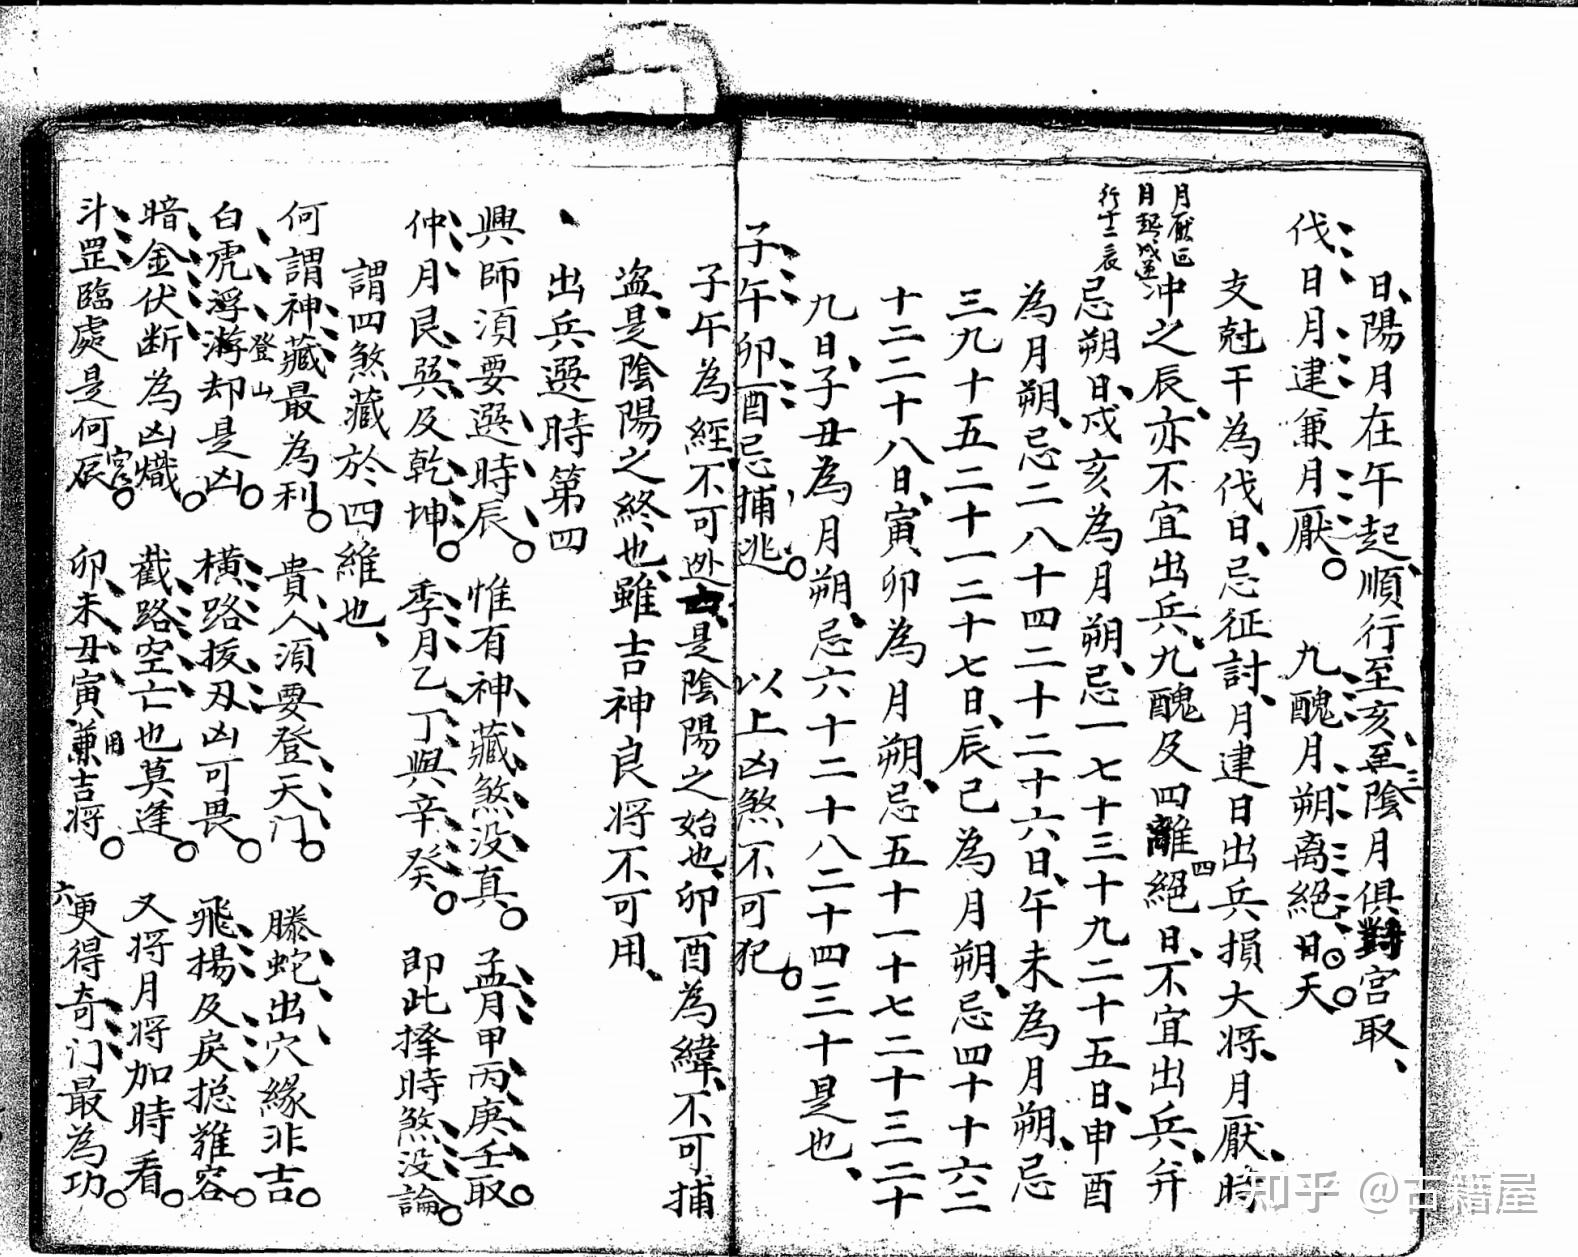 日陽月在午起順行至亥至陰月俱對宮取
伐日月建兼月厭 九醜月朔離絕日天
支尅干為伐日忌征討月建日出兵損大將月厭時
月厭正
月起戌逆
行十二辰
沖之辰亦不宜出兵九醜及四離四絕日不宜出兵并
忌朔日戌亥為月朔忌一七十三十九二十五日申酉
為月朔忌二八十四二十二十六日午未為月朔忌
三九十五二十一二十七日辰巳為月朔忌四十十六二
十二二十八日寅卯為月朔忌五十一十七二十三二十
九日子丑為月朔忌六十二十八二十四三十是也
子午卯酉忌捕逃 以上凶煞不可犯
子午為經不可逃是陰陽之始也卯酉為緯不可捕
盜是陰陽之終也雖吉神良將不可用
出兵選時第四
興師須要選時辰 惟有神藏煞没真 孟月甲丙庚壬取
仲月艮巽及乾坤 季月乙丁與辛癸 即此擇時煞没論
謂四煞藏於四維也
何謂神藏最為利 貴人須要登天门 螣蛇出穴緣非吉
登山
白虎浮游却是凶 橫路拔刃凶可畏 飛揚及戾摠難容
暗金伏断為凶熾 截路空亡也莫逢 又将月将加時看
斗罡臨處是何辰 卯未丑寅兼吉將 更得奇门最為功
宮
用
六
知乎 @古籍屋